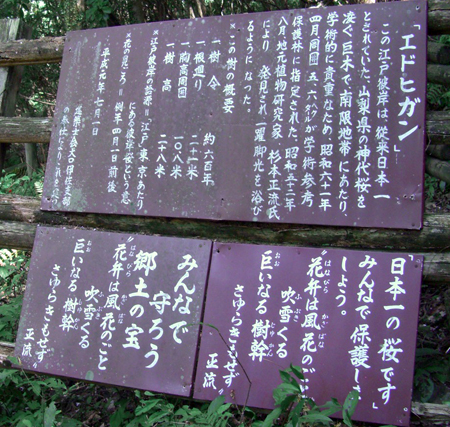 「エドヒガン」
この江戸彼岸は、従来日本一
とされていた、山梨県の神代桜を
凌ぐ巨木で、南限地帯にあたり、
学術的に貴重なため、昭和六十一年
四月周囲五、六ヘクタルが学術参考
保護林に指定された。昭和五十二年
八月地元植物研究家、杉本正流氏
により発見され一躍脚光を浴び
るようになった。
※この樹の概要
一樹令 約六百年
一根廻り 二十一米
一胸高周囲 一〇、八米
一樹高 二十八米
※江戸彼岸の語源=「江戸」東京あたり
にある彼岸桜という意
※花の見ごろ=例年四月一日前後
平成元年七月一日
「日本一の桜です
みんなで保護しま
しょう。」
花弁は風花のごと
はなびら かざばな
吹雪くる
ふぶき
巨いなる樹幹
おお じゅかん
さゆらぎもせず
正流
みんなで
守ろう
郷土の宝
花弁は風花のごと
はなびら かざばな
吹雪くる
ふぶき
巨いなる樹幹
おお じゅかん
さゆらぎもせず
正流